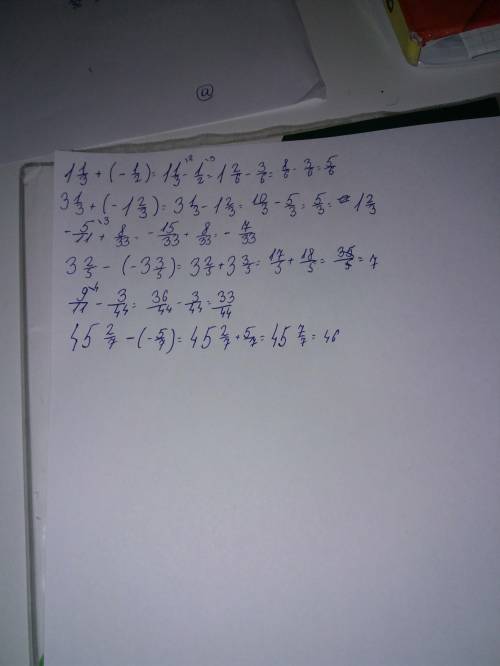 a
1 1/3 + (- 1/2) = 1 1/3 - 1/2 = 1 2/6 - 3/6 = 8/6 - 3/6 = 5/6
3 1/3 + (- 1 2/3) = 3 1/3 - 1 2/3 = 10/3 - 5/3 = 5/3 = 1 2/3
- 5/11 + 8/33 = - 15/33 + 8/33 = - 7/33
3 2/5 - (- 3 3/5) = 3 2/5 + 3 3/5 = 17/5 + 18/5 = 35/5 = 7
9/11 - 3/44 = 36/44 - 3/44 = 33/44
45 2/7 - (- 5/7) = 45 2/7 + 5/7 = 45 7/7 = 46